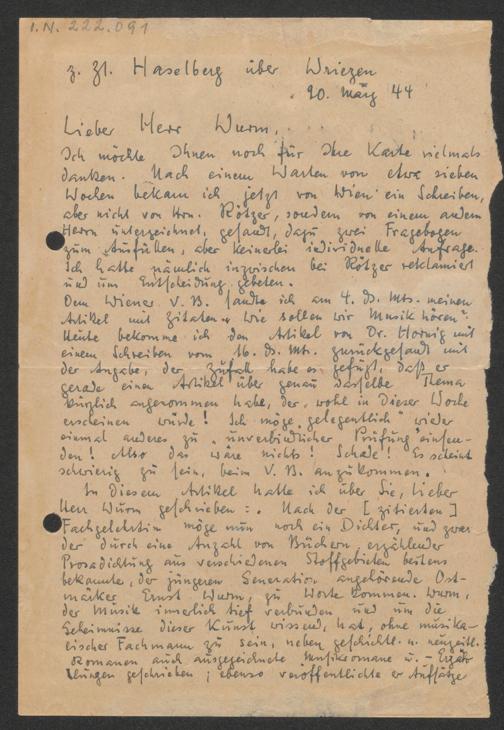 I.N. 222.091
z. Zt. Haselberg über Wriezen
20. März 44
Lieber Herr Wurm,
Ich möchte Ihnen noch für Ihre Karte vielmals
danken. Nach einem Warten von etwa sieben
Wochen bekam ich jetzt von Wien ein Schreiben,
aber nicht von Hrn. Rötzer, sondern von einem andern
Herrn unterzeichnet, gesandt, dazu zwei Fragebogen
zum Ausfüllen, aber keinerlei individuelle Anfrage.
Ich hatte nämlich inzwischen bei Rötzer reklamiert
und um Entscheidung gebeten.
Dem Wiener V. B. sandte ich am 4. ds. Mts. meinen
Artikel mit Zitaten „Wie sollen wir Musik hören".
Heute bekomme ich den Artikel von Dr. Hornig mit
einem Schreiben vom 16. ds. Mts. zurückgesandt mit
der Angabe, der Zufall habe es gefügt, daß er
gerade einen Artikel über genau dasselbe Thema
kürzlich angenommen habe, der wohl in dieser Woche
erscheinen würde! Ich möge „gelegentlich" wieder
einmal anderes zu „unverbindlicher Prüfung" einsen-
den! Also das wäre nichts! Schade! Es scheint
schwierig zu sein, beim V. B. anzukommen.
In diesem Artikel hatte ich über Sie, lieber
Herr Wurm geschrieben: Nach der [zitierten]
Fachgelehrten möge nun noch ein Dichter, und zwar
der durch eine Anzahl von Büchern erzählender
Prosadichtung aus verschiedenen Stoffgebieten bestens
bekannte, der jüngeren Generation angehörende Ost-
märker Ernst Wurm, zu Worte kommen. Wurm,
der Musik innerlich tief verbunden und um die
Geheimnisse dieser Kunst wissend, hat, ohne musika-
lischer Fachmann zu sein, neben geschichtl. u. neuzeitl.
Romanen auch ausgezeichnete Musikromane u. - Erzäh-
lungen geschrieben; ebenso veröffentlichte er Aufsätze